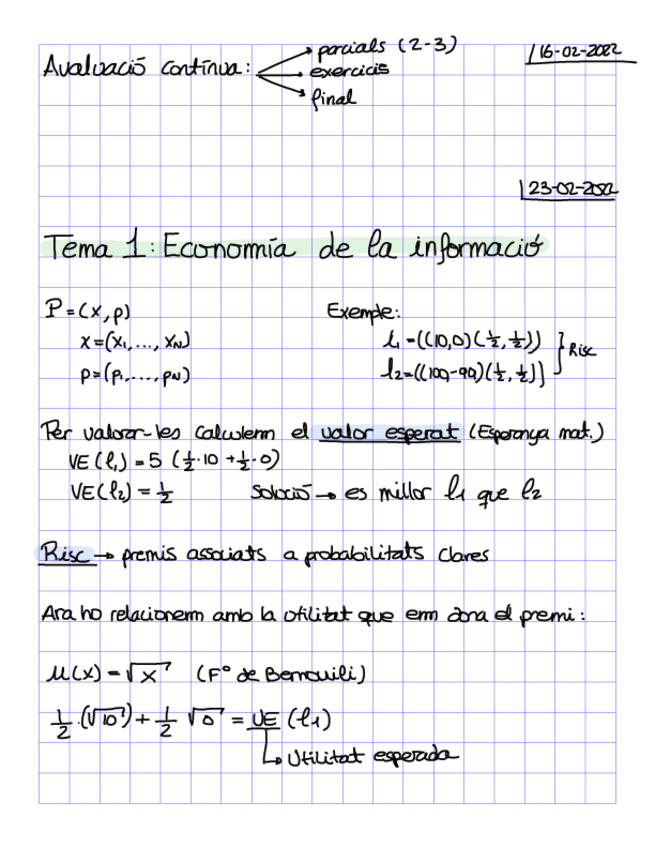 Avaluació contínua: parcials (2-3)
exercicis
final
16-02-2022
23-02-2022
Tema 1: Economía de la informació
P=(x,p)
x=(x₁,..., x_N)
p=(p₁,..., p_N)
Exemple:
l₁=((10,0)(½,½))
l₂=((100,-99)(½,½))
} Risc
Per valorar-les calculem el valor esperat (Esperança mat.)
VE(l₁)=5 (½·10+½·0)
VE(l₂)=½ Solució → es millor l₁ que l₂
Risc → premis associats a probabilitats clares
Ara ho relacionem amb la utilitat que em dona el premi:
μ(x)=√x (Fº de Bernouili)
½·(√10)+½√0=UE(l₁)
↳ Utilitat esperada